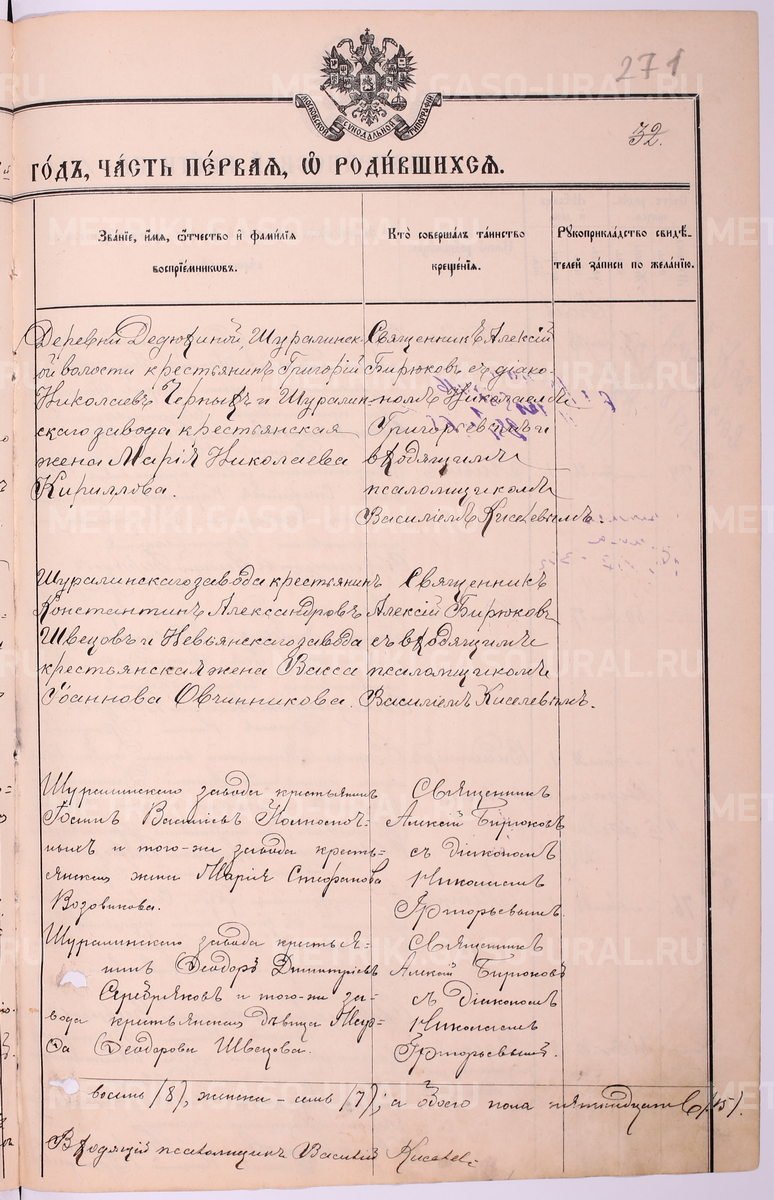 271
МОСКОВСКОЙ СѴНОДАЛЬНОЙ ТИПОГРАФІИ
32.
ГО́ДЪ, ЧА́СТЬ ПЕ́РВАѦ, Ѡ҆ РОДИ́ВШИХСѦ.
Зва́нїе, и҆́мѧ, ѻ҆́тчество и҆ фами́лїѧ
воспрїе́мникѡвъ.
Кто̀ соверша́лъ та́инство
креще́нїѧ.
Рꙋкоприкла́дство свидѣ́-
телей за́писи по жела́нїю.
Деревни Дедюхиной, Шуралинск-
ой волости крестьянинъ Григорій
Николаевъ Черныхъ и Шуралин-
скаго завода крестьянская
жена Марія Николаева
Кириллова.
Священникъ Алексій
Бирюковъ съ діако-
номъ Николаемъ
Григорьевымъ и
входящимъ
псаломщикомъ
Василіемъ Киселевымъ.
Шуралинскаго завода крестьянинъ
Константинъ Александровъ
Швецовъ и Невьянскаго завода
крестьянская жена Васса
Іоаннова Овчинникова.
Священникъ
Алексій Бирюковъ
съ входящимъ
псаломщикомъ
Василіемъ Киселевымъ.
Шуралинскаго завода крестьянинъ
Іоаннъ Василіевъ
и того-же завода кресть-
янская жена Марія Стефанова
Возовикова.
Священникъ
Алексій Бирюковъ
съ діакономъ
Николаемъ
Григорьевымъ.
Шуралинскаго завода крестья-
нинъ Ѳеодоръ Димитріевъ
Серебряковъ и того-же за-
вода крестьянская дѣвица
Ѳеодорова Швецова.
Священникъ
Алексій Бирюковъ
съ діакономъ
Николаемъ
Григорьевымъ.
восемь (8), женска – семь (7); а обоего пола пятнадцать (15).
Входящій псаломщикъ Василій Киселевъ
METRIKI.GASO-URAL.RU